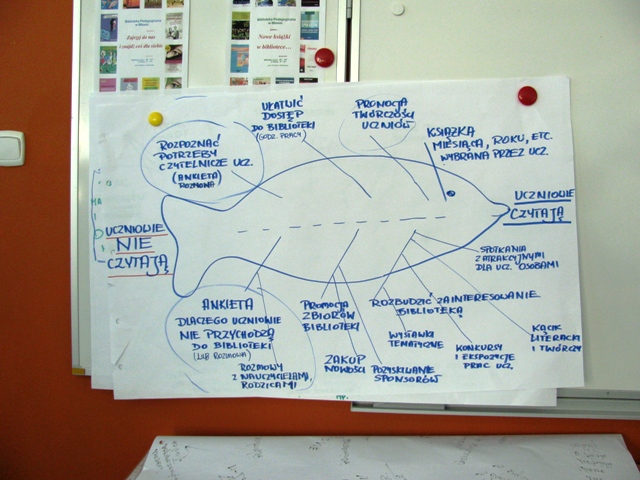 Biblioteka Pedagogiczna
w Mławie
Zajrzyj do nas
i znajdź coś dla siebie
Biblioteka Pedagogiczna
w Mławie
Nowe książki
w bibliotece...
UŁATWIĆ
DOSTĘP
DO BIBLIOTEKI
(GODZ. PRACY)
PROMOCJA
TWÓRCZOŚCI
UCZNIÓW
KSIĄŻKA
MIESIĄCA, ROKU, ETC.
WYBRANA PRZEZ UCZ.
ROZPOZNAĆ
POTRZEBY
CZYTELNICZE UCZ.
(ANKIETA)
ROZMOWA
UCZNIOWIE
CZYTAJĄ
UCZNIOWIE
NIE
CZYTAJĄ
SPOTKANIA
Z ATRAKCYJNYMI
DLA UCZ. OSOBAMI
ANKIETA
DLACZEGO UCZNIOWIE
NIE PRZYCHODZĄ
DO BIBLIOTEKI
(LUB ROZMOWA)
ROZMOWY
Z NAUCZYCIELAMI,
RODZICAMI
PROMOCJA
ZBIORÓW
BIBLIOTEKI
ZAKUP
NOWOŚCI
POZYSKIWANIE
SPONSORÓW
ROZBUDZIĆ ZAINTERESOWANIE
BIBLIOTEKĄ
WYSTAWKI
TEMATYCZNE
KONKURSY
I EKSPOZYCJE
PRAC UCZ.
KĄCIK
LITERACKI
I TWÓRCZY